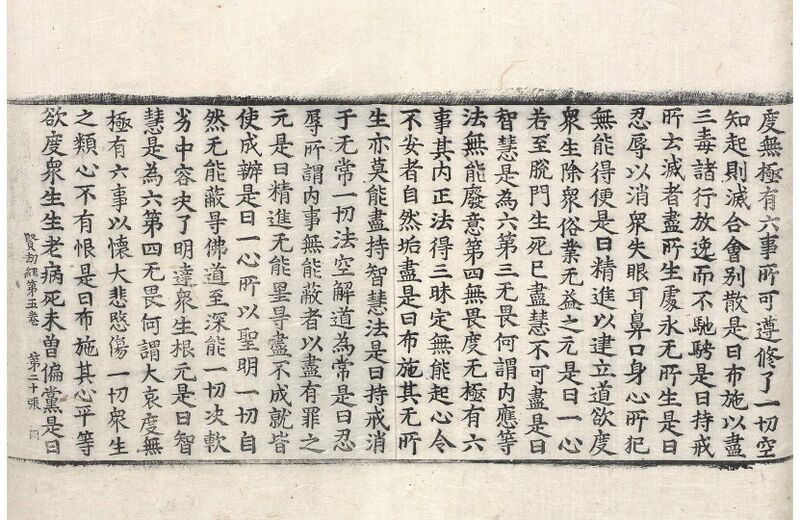 度無極有六事所可遵修了一切空
知起則滅合會別散是曰布施以盡
三毒諸行放逸而不馳騁是曰持戒
所去滅者盡所生處永无所生是曰
忍辱以消衆失眼耳鼻口身心所犯
無能得便是曰精進以建立道欲度
衆生除衆俗業无益之元是曰一心
若至脫門生死已盡慧不可盡是曰
智慧是為六第三无畏何謂内應等
法無能廢意第四無畏度无極有六
事其内正法得三昧定無能起心令
不安者自然垢盡是曰布施其无所
生亦莫能盡持智慧法是曰持戒消
于无常一切法空解道為常是曰忍
辱所謂内事無能蔽者以盡有罪之
元是曰精進无能罣㝵盡不成就皆
使成辦是曰一心所以聖明一切自
然无能蔽㝵佛道至深能一切决軟
劣中容决了明達衆生根元是曰智
慧是為六第四无畏何謂大哀度無
極有六事以懷大悲愍傷一切衆生
之類心不有恨是曰布施其心平等
欲度衆生生老病死未曾偏黨是曰
賢劫經第五卷 第二十張